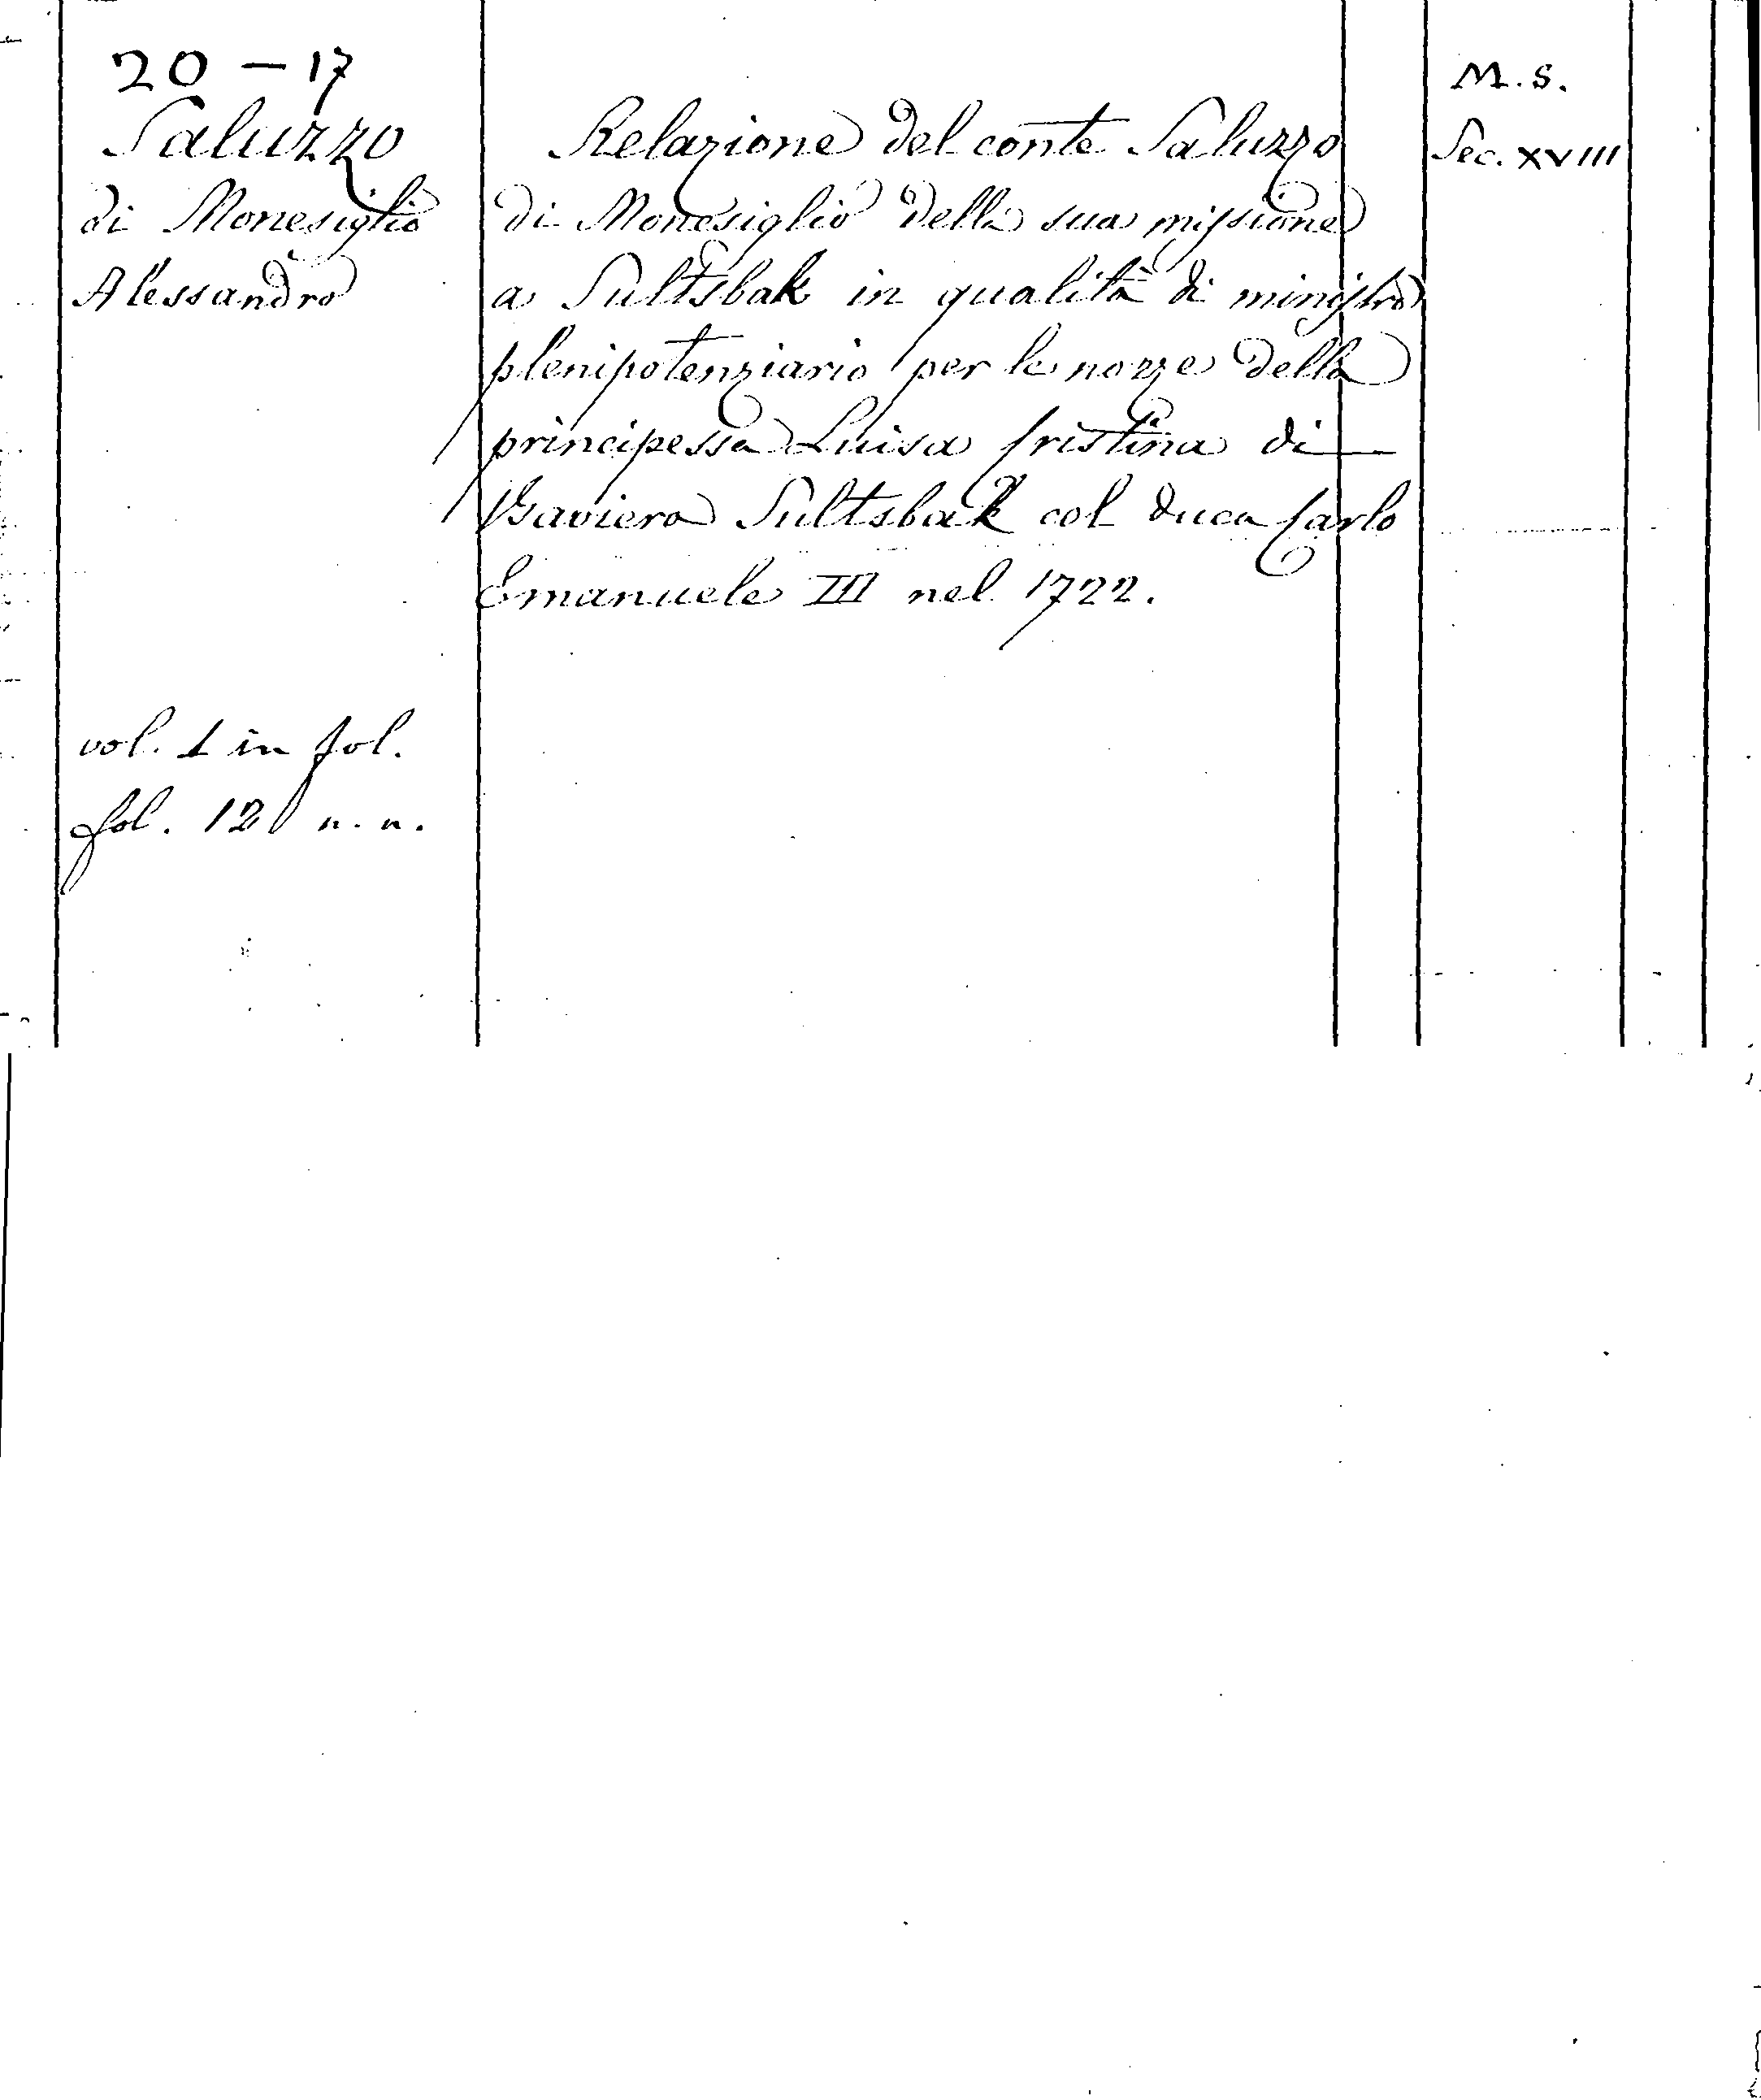 20 – 17
Saluzzo
di Monesiglio
Alessandro
vol. 1 in fol.
fol. 12 n. n.
Relazione del conte Saluzzo
di Monesiglio della sua missione
a Sultsbak in qualità di ministro
plenipotenziario per le nozze della
principessa Luisa Cristina di
Baviera Sultsbak col duca Carlo
Emanuele III nel 1722.
M. S.
Sec. XVIII